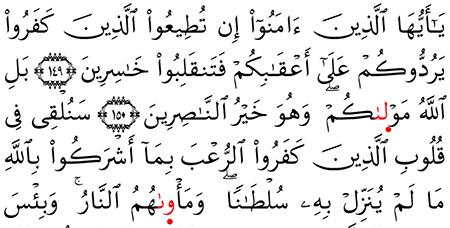 يَـٰٓأَيُّهَا ٱلَّذِينَ ءَامَنُوٓا۟ إِن تُطِيعُوا۟ ٱلَّذِينَ كَفَرُوا۟
يَرُدُّوكُمْ عَلَىٰٓ أَعْقَـٰبِكُمْ فَتَنقَلِبُوا۟ خَـٰسِرِينَ ١٤٩ بَلِ
ٱللَّهُ مَوْلَىٰكُمْ ۖ وَهُوَ خَيْرُ ٱلنَّـٰصِرِينَ ١٥٠ سَنُلْقِى فِى
قُلُوبِ ٱلَّذِينَ كَفَرُوا۟ ٱلرُّعْبَ بِمَآ أَشْرَكُوا۟ بِٱللَّهِ
مَا لَمْ يُنَزِّلْ بِهِۦ سُلْطَـٰنًا ۖ وَمَأْوَىٰهُمُ ٱلنَّارُ ۚ وَبِئْسَ